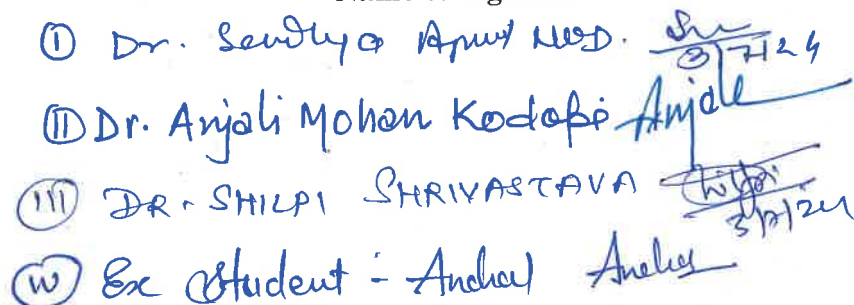 ① Dr. Sandhya 3/7/24
② Dr. Anjali Mohan Kodopi Anjali
(III) DR. SHILPI SHRIVASTAVA Shilpi 3/7/24
(IV) Ex Student - Anchal Anchal